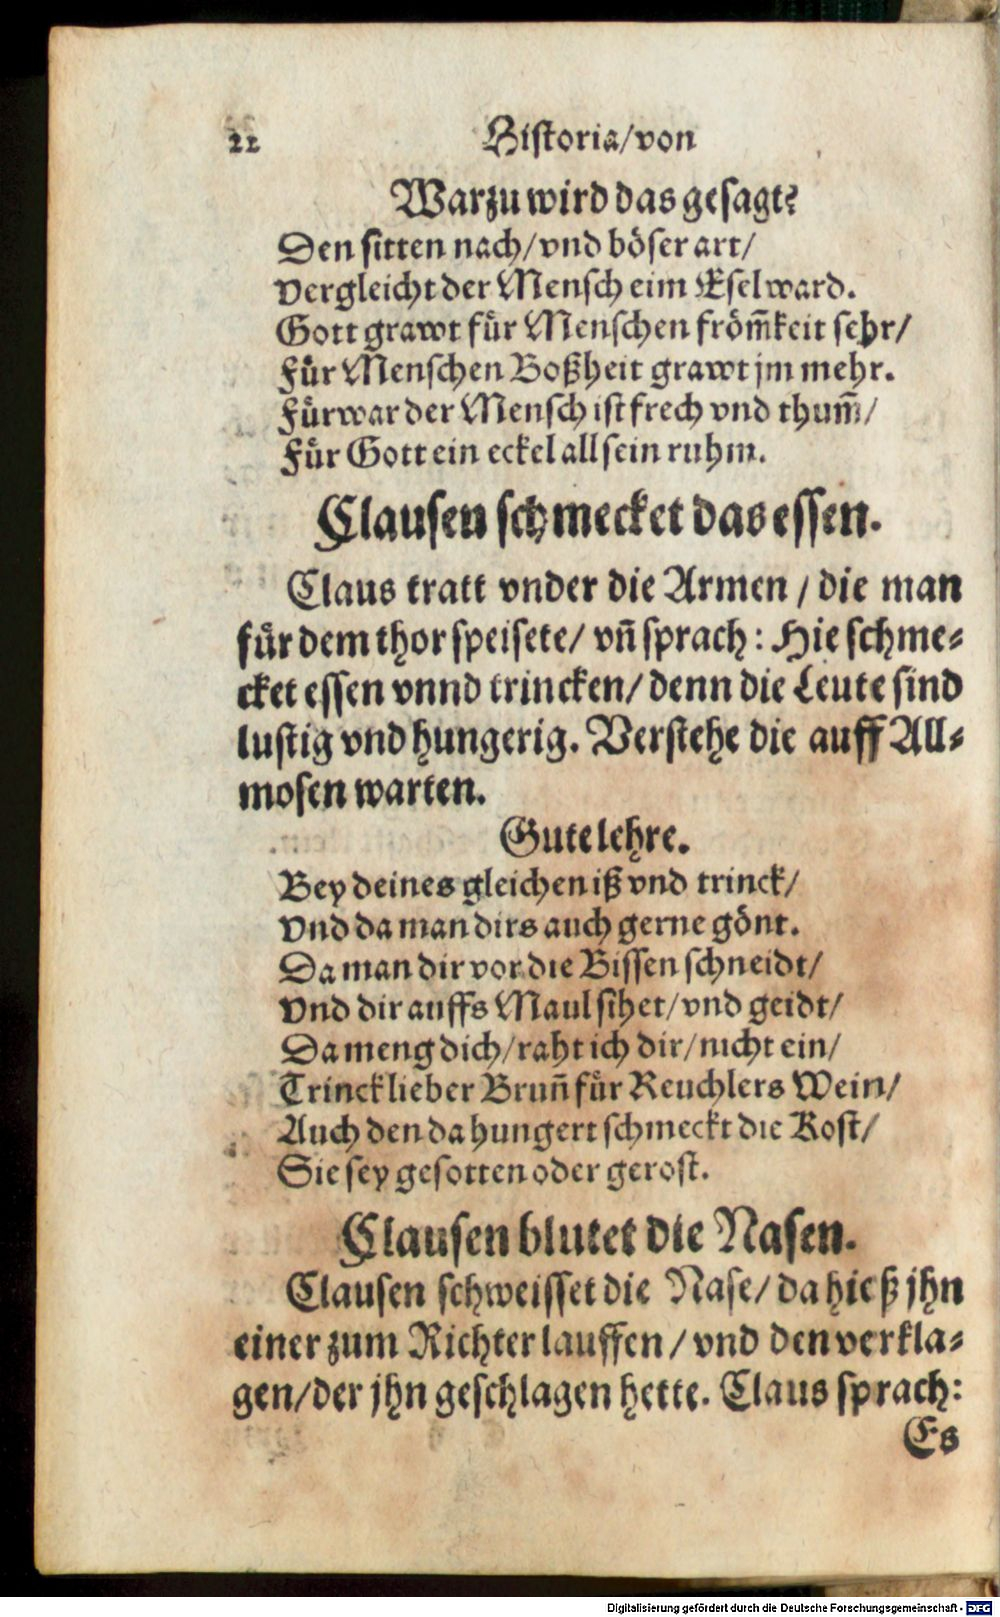 22 Historia/von
Warzu wird das gesagt?
Den sitten nach/vnd böser art/
Vergleicht der Mensch eim Esel ward.
Gott grawt für Menschen fröm̃keit sehr/
Für Menschen Boßheit grawt jm mehr.
Fürwar der Mensch ist frech vnd thum̃/
Für Gott ein eckel all sein ruhm.
Clausen schmecket das essen.
Claus tratt vnder die Armen / die man
für dem thor speisete/ vñ sprach: Hie schme-
cket essen vnnd trincken/ denn die Leute sind
lustig vnd hungerig. Verstehe die auff All-
mosen warten.
Gute lehre.
Bey deines gleichen iß vnd trinck/
Vnd da man dirs auch gerne gönt.
Da man dir vor die Bissen schneidt/
Vnd dir auffs Maul sihet/vnd geidt/
Da meng dich/raht ich dir/nicht ein/
Trinck lieber Bruñ für Reuchlers Wein/
Auch den da hungert schmeckt die Kost/
Sie sey gesotten oder gerost.
Clausen blutet die Nasen.
Clausen schweisset die Nase/ da hieß jhn
einer zum Richter lauffen / vnd den verkla-
gen/der jhn geschlagen hette. Claus sprach:
Es
Digitalisierung gefördert durch die Deutsche Forschungsgemeinschaft - DFG